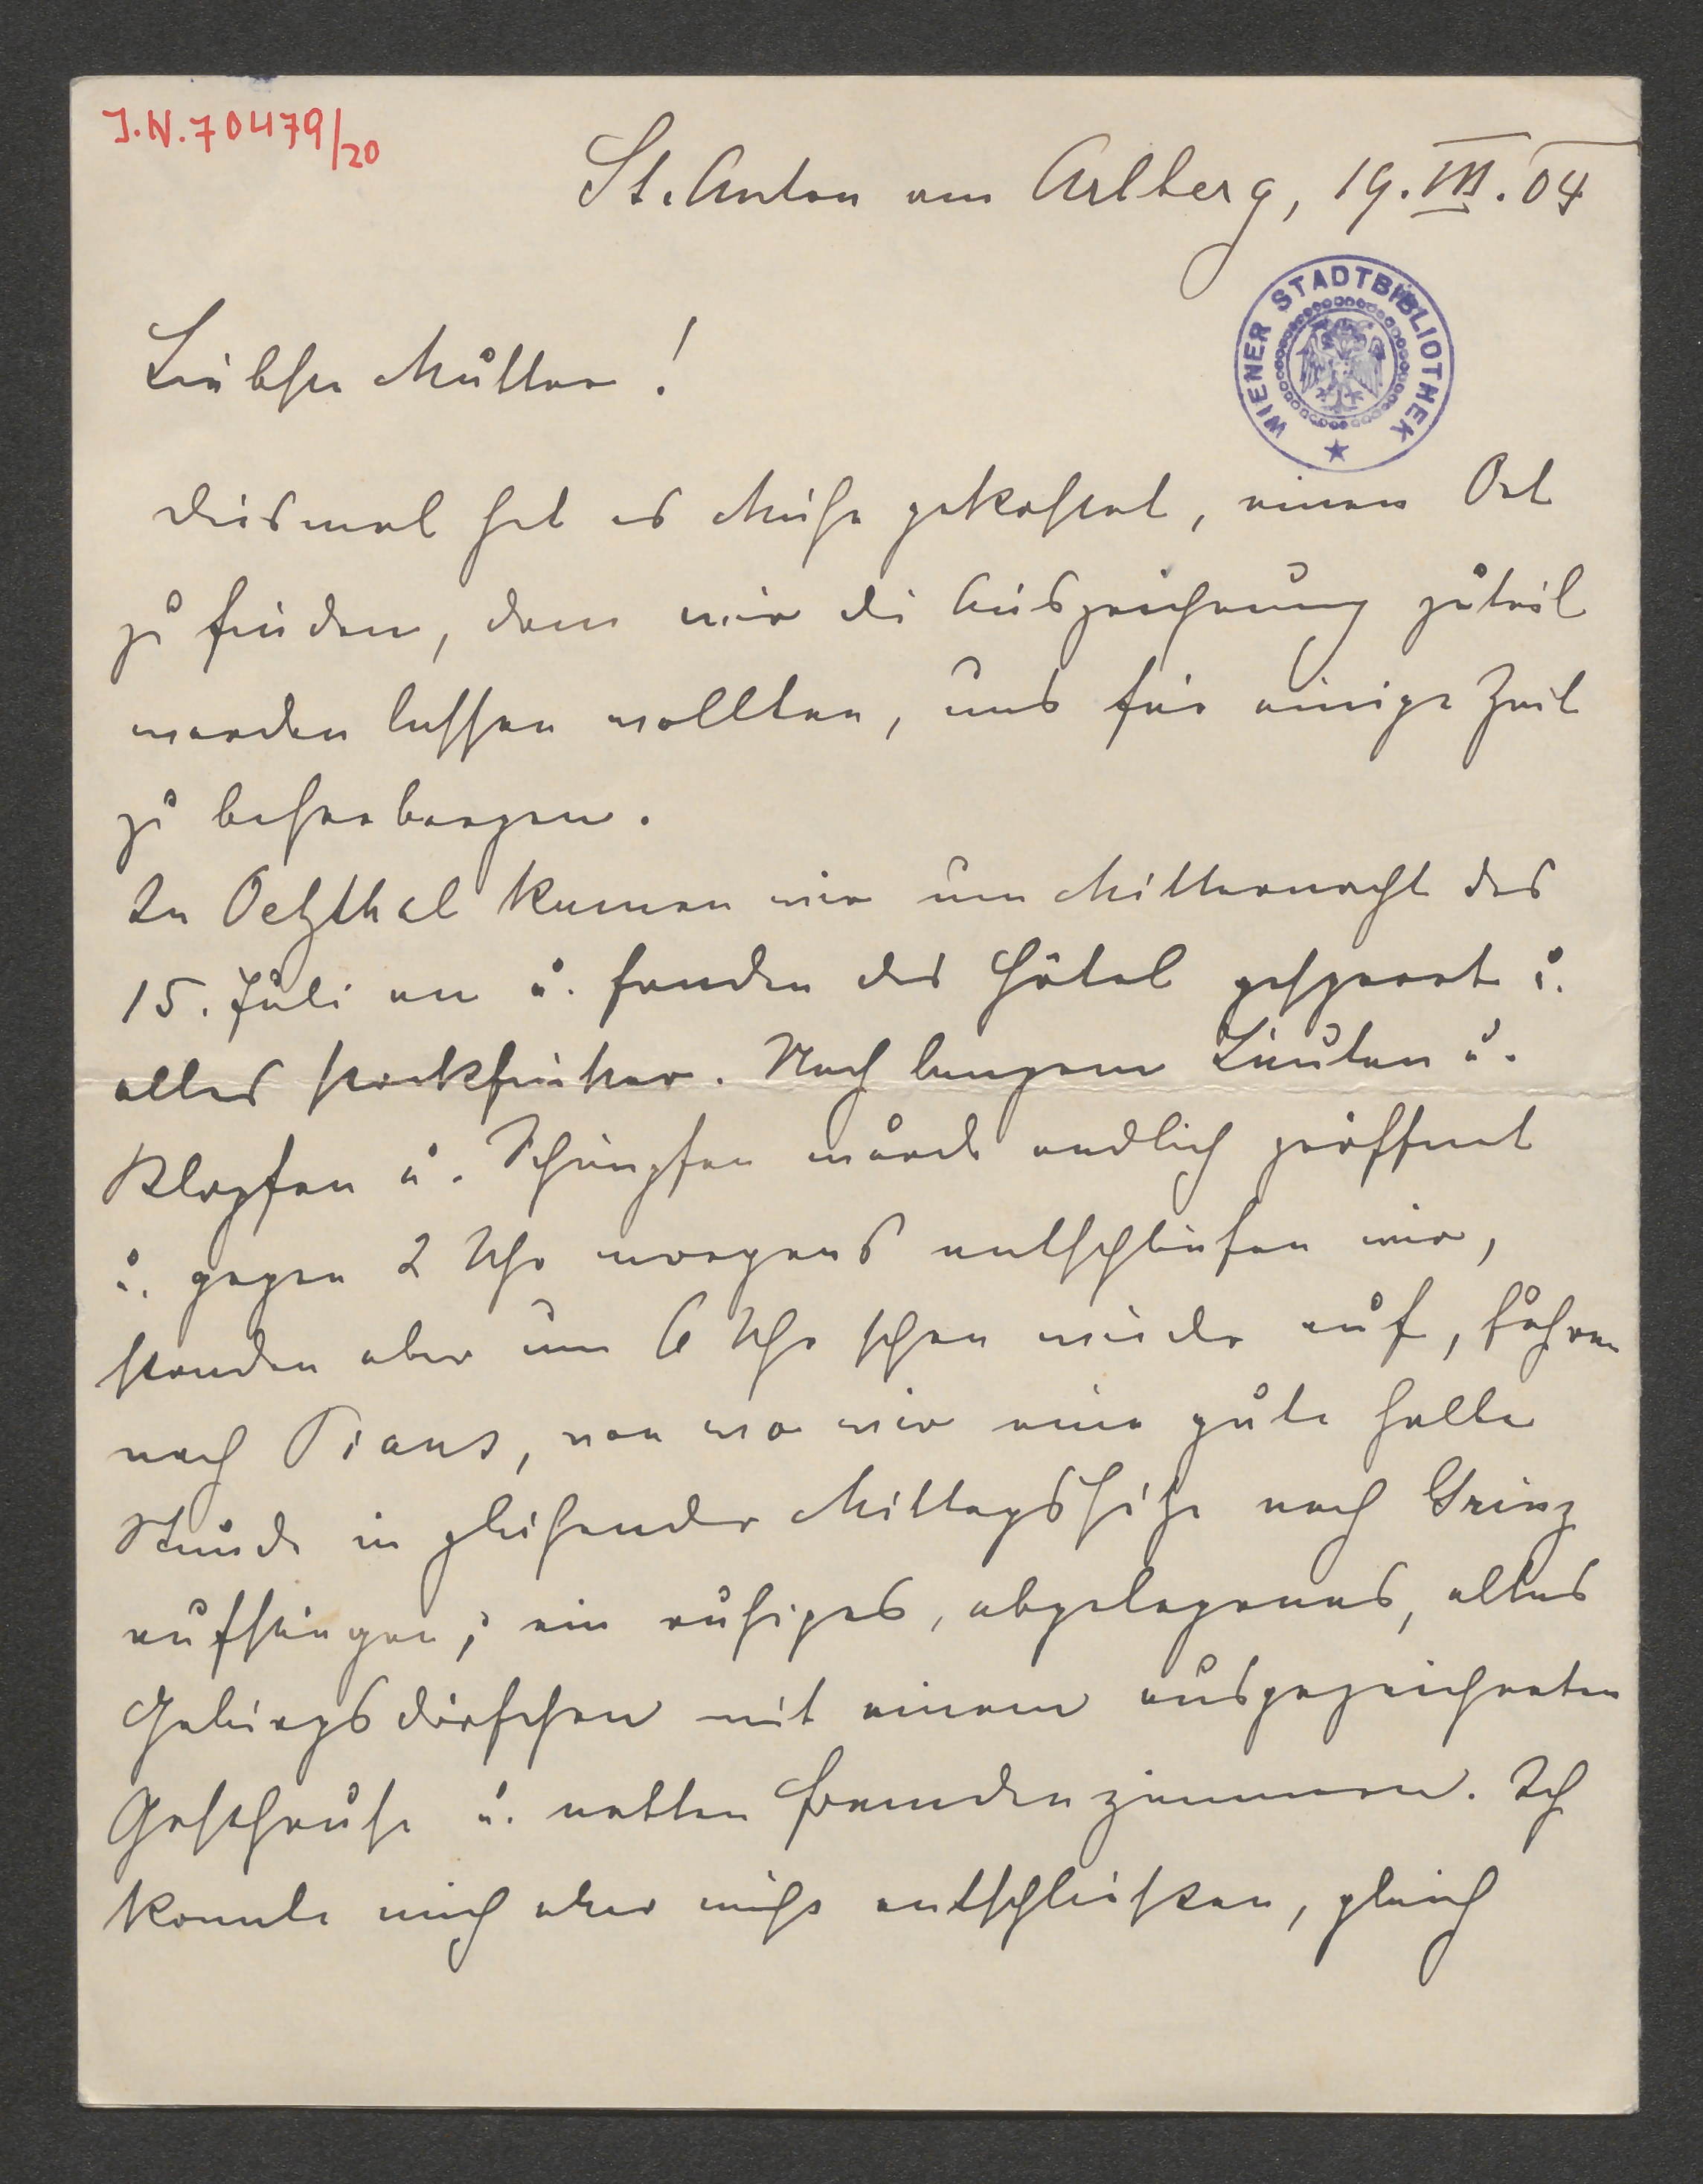 J.N.70479/20
St. Anton am Arlberg, 19.VII.04
WIENER STADTBIBLIOTHEK
Liebste Mutter!
diesmal hat es Mühe gekostet, einen Ort
zu finden, dem wir die Auszeichnung zuteil
werden lassen wollten, uns für einige Zeit
zu beherbergen.
In Oetzthal kamen wir um Mitternacht des
15. Juli an u. fanden das Hôtel gesperrt u.
alles stockfinster. Nach langem Läuten u.
Klopfen u. Schimpfen wurde endlich geöffnet
u. gegen 2 Uhr morgens entschliefen wir,
standen aber um 6 Uhr schon wieder auf, fuhren
nach Pians, von wo wir eine gute halbe
Stunde in glühender Mittagshitze nach Grins
aufstiegen; ein ruhiges, abgelegenes, altes
Gebirgsdörfchen mit einem ausgezeichneten
Gasthause u. netten Fremdenzimmern. Ich
konnte mich aber nicht entschließen, gleich